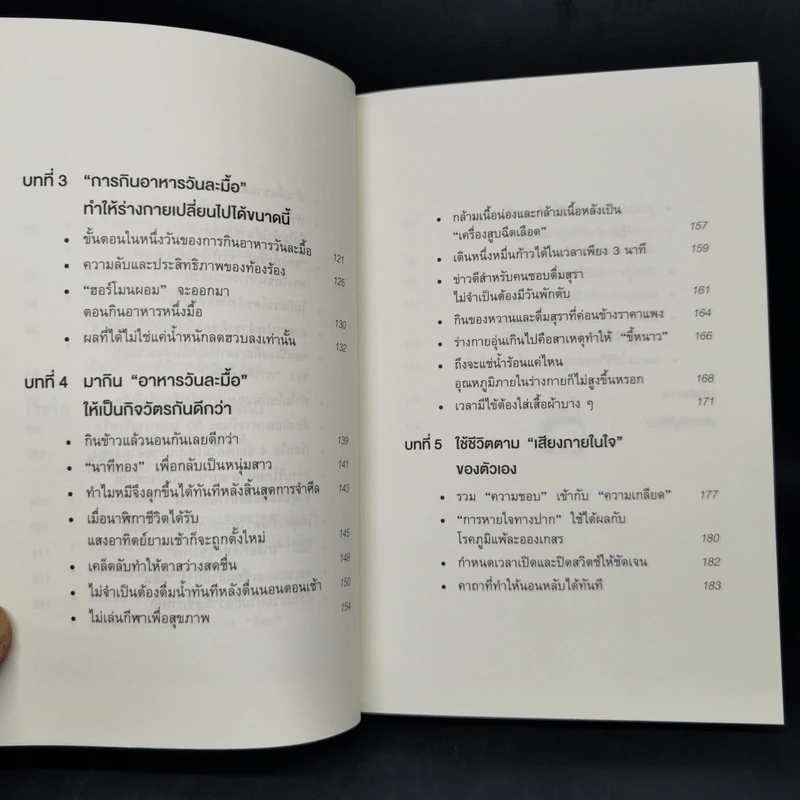 บทที่ 3 “การกินอาหารวันละมื้อ”
ทำให้ร่างกายเปลี่ยนไปได้ขนาดนี้
• ขั้นตอนในหนึ่งวันของการกินอาหารวันละมื้อ 121
• ความลับและประสิทธิภาพของท้องร้อง 125
• “ฮอร์โมนผอม” จะออกมา
ตอนกินอาหารหนึ่งมื้อ 130
• ผลที่ได้ไม่ใช่แค่น้ำหนักลดฮวบลงเท่านั้น 132
บทที่ 4 มากิน “อาหารวันละมื้อ”
ให้เป็นกิจวัตรกันดีกว่า
• กินข้าวแล้วนอนกันเลยดีกว่า 139
• “นาทีทอง” เพื่อกลับเป็นหนุ่มสาว 141
• ทำไมหมีจึงลุกขึ้นได้ทันทีหลังสิ้นสุดการจำศีล 143
• เมื่อนาฬิกาชีวิตได้รับ
แสงอาทิตย์ยามเช้าก็จะถูกตั้งใหม่ 145
• เคล็ดลับทำให้ตาสว่างสดชื่น 148
• ไม่จำเป็นต้องดื่มน้ำทันทีหลังตื่นนอนตอนเช้า 150
• ไม่เล่นกีฬาเพื่อสุขภาพ 154
• กล้ามเนื้อน่องและกล้ามเนื้อหลังเป็น
“เครื่องสูบฉีดเลือด” 157
• เดินหนึ่งหมื่นก้าวได้ในเวลาเพียง 3 นาที 159
• ข่าวดีสำหรับคนชอบดื่มสุรา
ไม่จำเป็นต้องมีวันพักตับ 161
• กินของหวานและดื่มสุราที่ค่อนข้างราคาแพง 164
• ร่างกายอุ่นเกินไปคือสาเหตุทำให้ “ขี้หนาว” 166
• ถึงจะแช่น้ำร้อนแค่ไหน
อุณหภูมิภายในร่างกายก็ไม่สูงขึ้นหรอก 168
• เวลามีไข้ต้องใส่เสื้อผ้าบาง ๆ 171
บทที่ 5 ใช้ชีวิตตาม “เสียงภายในใจ”
ของตัวเอง
• รวม “ความชอบ” เข้ากับ “ความเกลียด” 177
• “การหายใจทางปาก” ใช้ได้ผลกับ
โรคภูมิแพ้ละอองเกสร 180
• กำหนดเวลาเปิดและปิดสวิตช์ให้ชัดเจน 182
• คาถาที่ทำให้นอนหลับได้ทันที 183